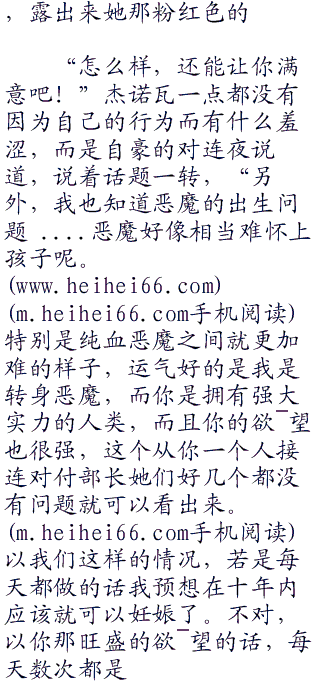 ，露出来她那粉红色的
“怎么样，还能让你满
意吧！”杰诺瓦一点都没有
因为自己的行为而有什么羞
涩，而是自豪的对连夜说
道，说着话题一转，“另
外，我也知道恶魔的出生问
题 ....恶魔好像相当难怀上
孩子呢。
(www.heihei66.com)
(m.heihei66.com手机阅读)
特别是纯血恶魔之间就更加
难的样子，运气好的是我是
转身恶魔，而你是拥有强大
实力的人类，而且你的欲¯望
也很强，这个从你一个人接
连对付部长她们好几个都没
有问题就可以看出来。
(m.heihei66.com手机阅读)
以我们这样的情况，若是每
天都做的话我预想在十年内
应该就可以妊娠了。不对，
以你那旺盛的欲¯望的话，每
天数次都是